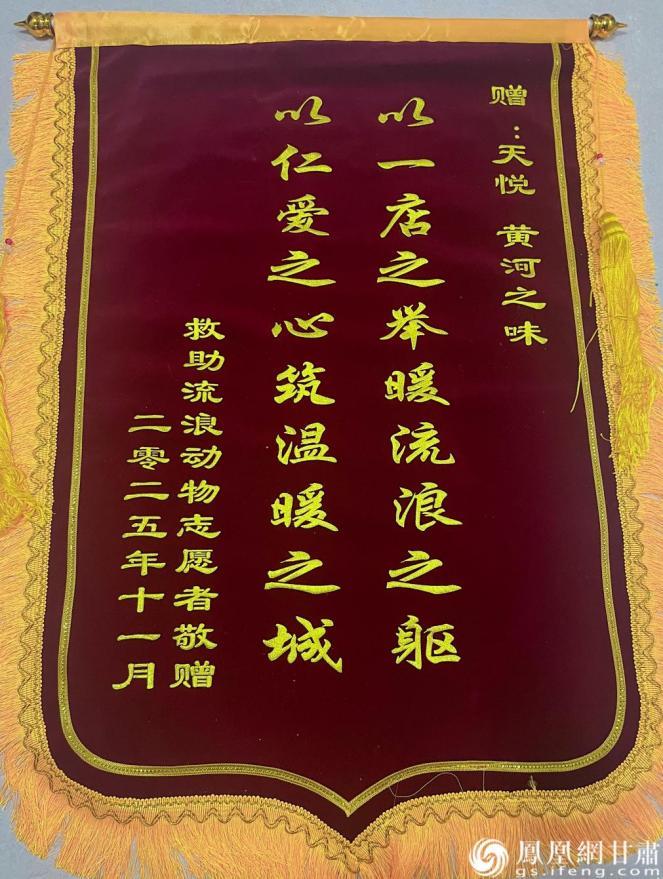 赠：天悦 黄河之味
以一店之举暖流浪之躯
以仁爱之心筑温暖之城
救助流浪动物志愿者敬赠
二零二五年十一月
鳳凰網甘肃
gs.ifeng.com